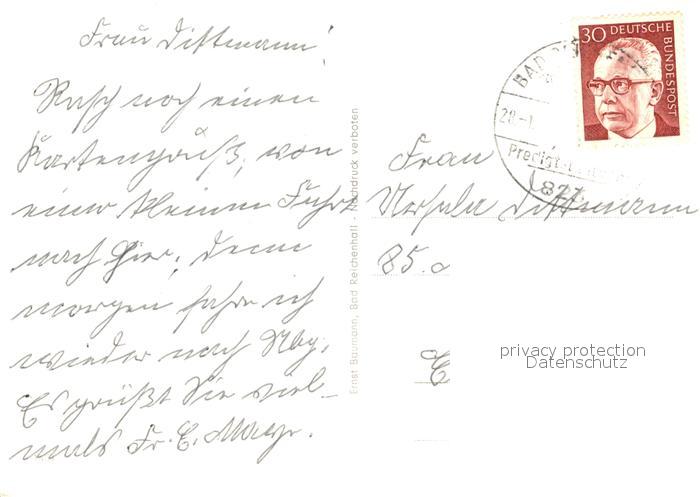 Frau Dittmann!
Rasch noch einen
Kartengruß, von
einer kleinen Fahrt
nach hier, denn
morgen fahre ich
wieder nach Nbg.
Es grüßt Sie viel-
mals Fr. E. Mayr.
Ernst Baumann, Bad Reichenhall - Nachdruck verboten
30 DEUTSCHE BUNDESPOST
BAD
28.-1
Predigt
Frau
Ursula Dittmann
85
E
privacy protection
Datenschutz